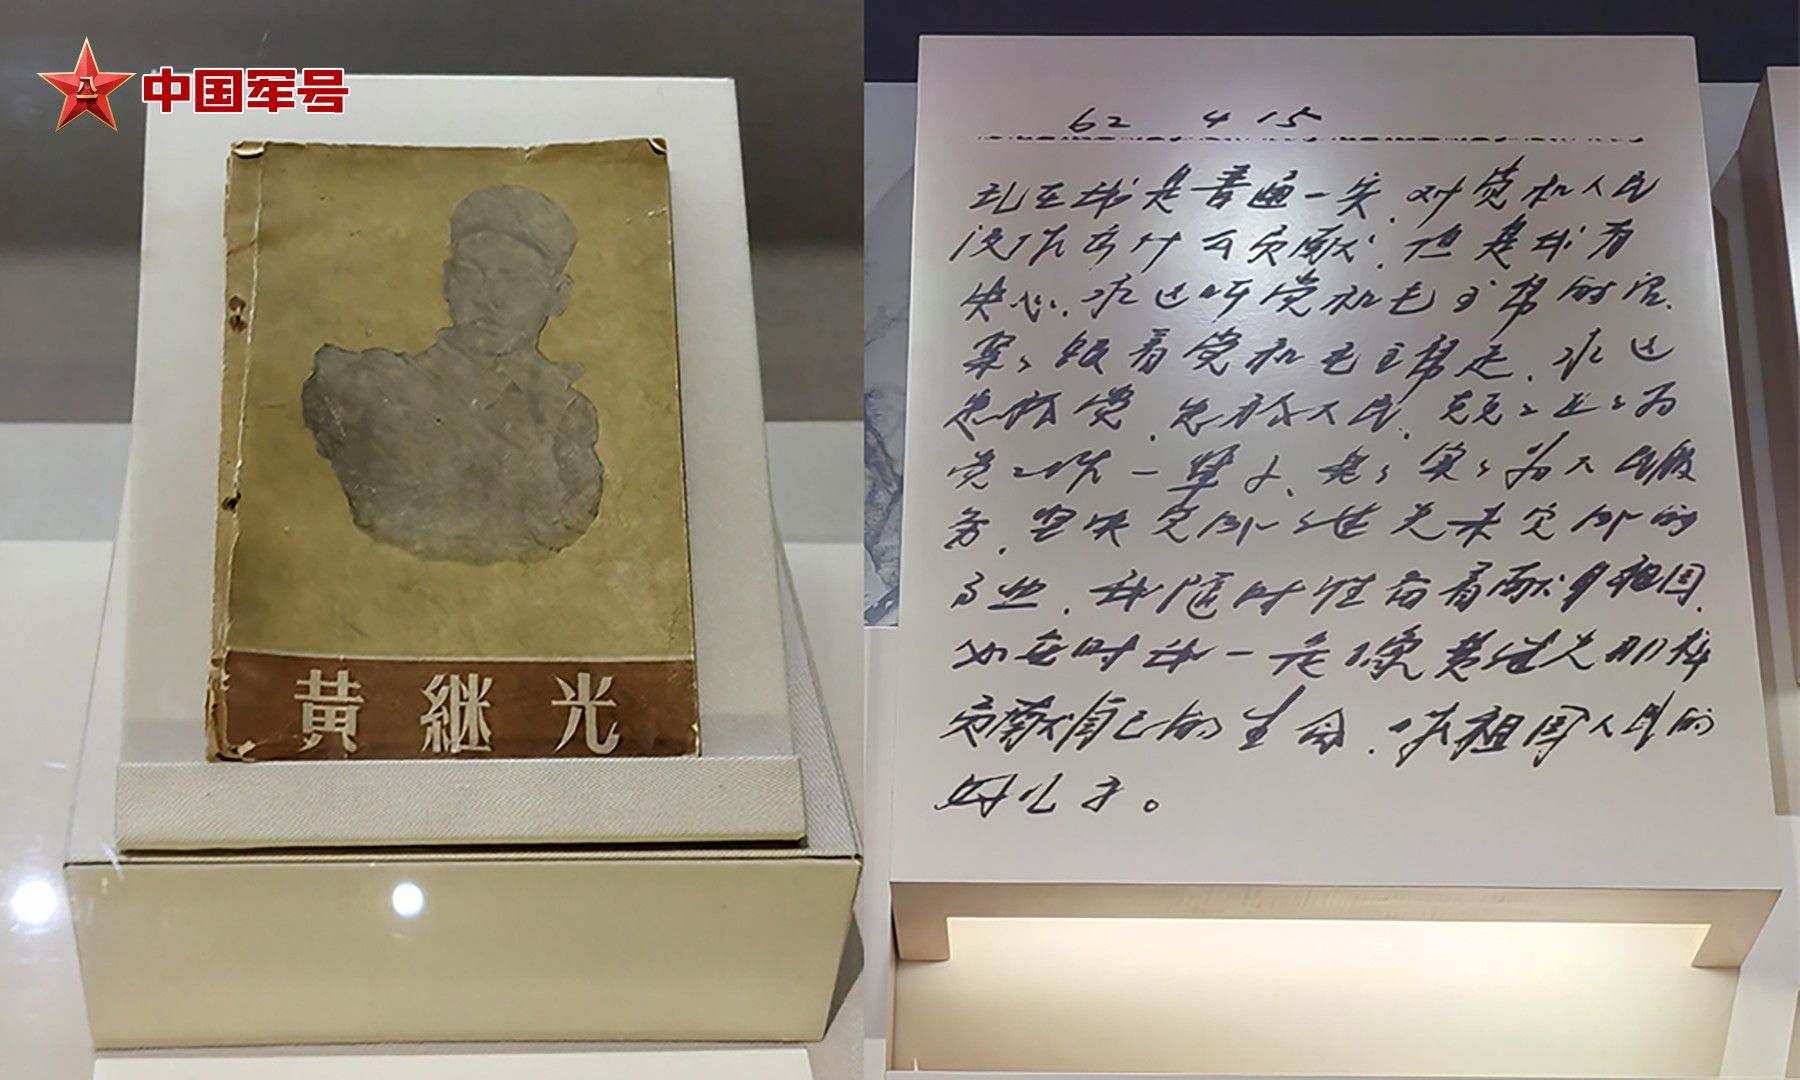 中国军号
黄 継 光
62 4 15
现在我是普通一兵,对党和人民
没作出什么贡献,但是我有
决心,永远听党和毛主席的话,
紧々跟着党和毛主席走,永远
忠於党,忠於人民,兢々业々为
党工作一辈子,老々实々为人民服
务,坚决完成继光未完成的
事业,我随时准备着献身祖国,
必要时我一定像黄继光那样
贡献自己的生命,做祖国人民的
好儿子。